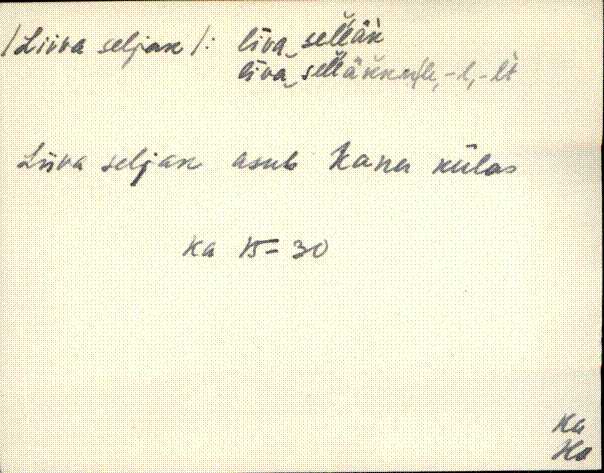 /Liiva seljak/: līva_sellàk
līva_sellàkkulle, -l, -lt
Liiva seljak asub Kanu külas
Ka 15-30
Ka
Ha